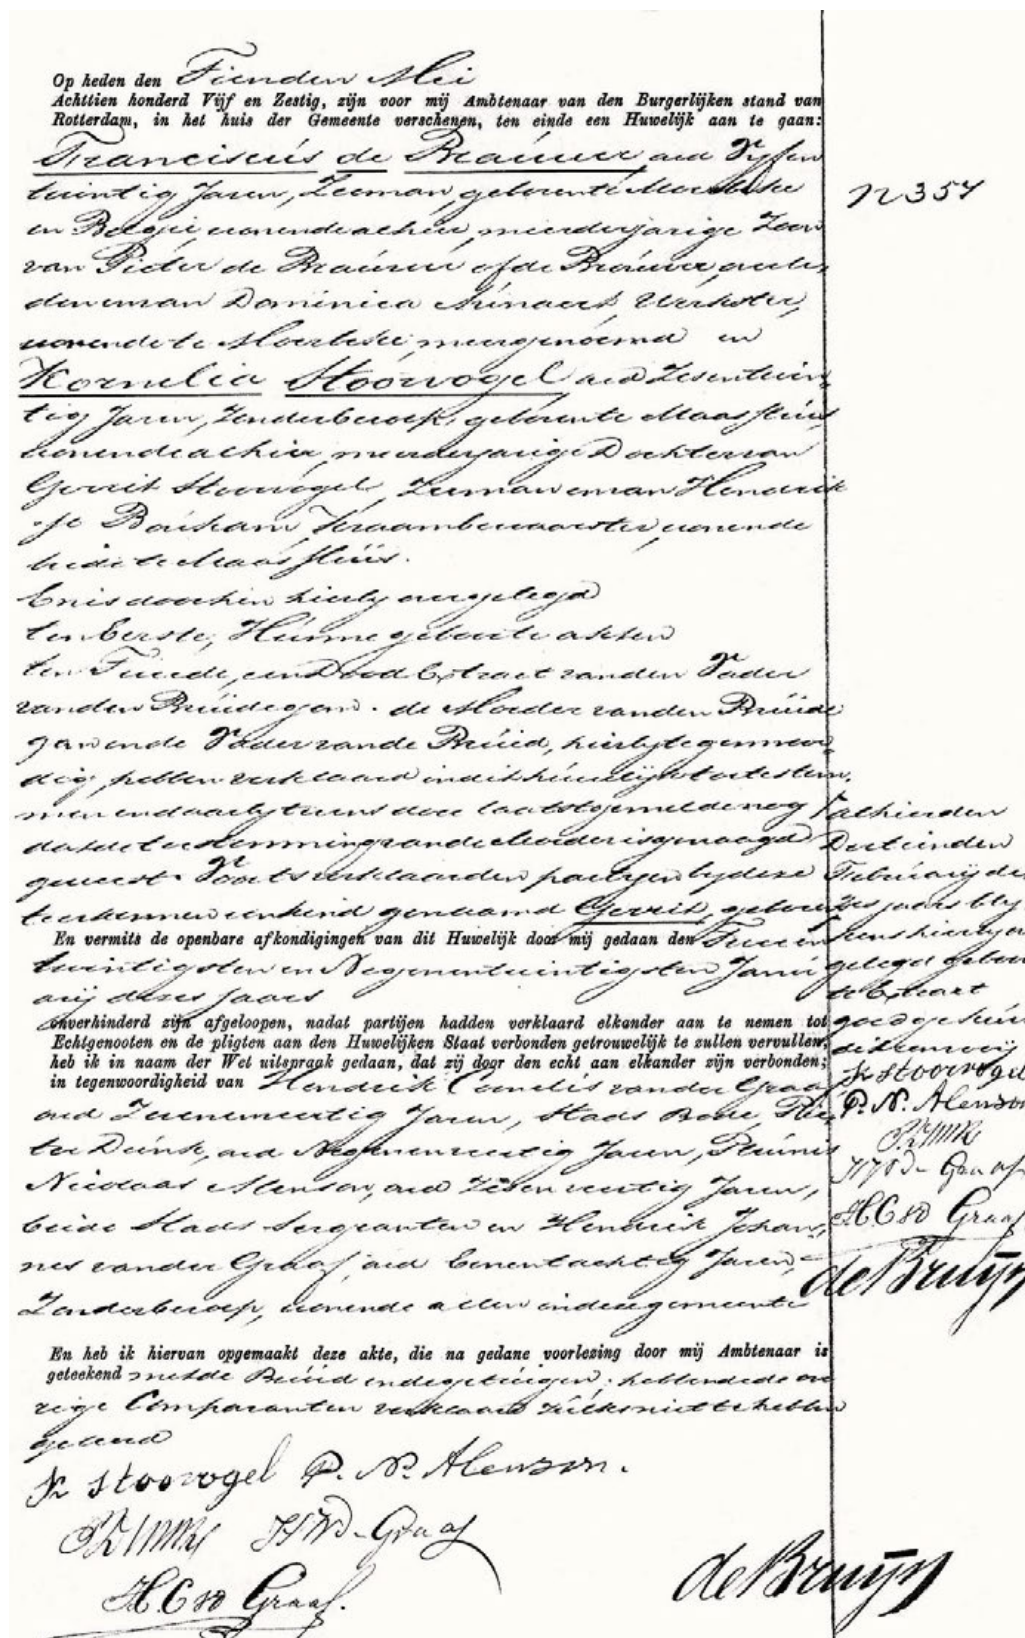 Op heden den Tienden Mei
Achttien honderd Vijf en Zestig, zijn voor mij Ambtenaar van den Burgerlijken stand van
Rotterdam, in het huis der Gemeente verschenen, ten einde een Huwelijk aan te gaan:
Franciscus de Brauwer oud Vyfen
twintig Jaren, Zeeman, geboren te Moerbeke
en België, wonende alhier, meerderjarige Zoon
van Pieter de Brauwer of de Brouwer, overle-
den en van Dominica Minaert, Werkster,
wonende te Moerbeke, meergenoemd en
Kornelia Stoorvogel oud Zesentwin
tig Jaren, Zonder beroep, geboren te Maassluis
wonende alhier, meerderjarige Dochter van
Gerrit Stoorvogel, Zeeman en van Hendrik
je Boukam, Kraambewaarster, wonende
beide te Maassluis.
En is door hen hierby overgelegd
ten Eerste, Hunne geboorte akten
ten Tweede, een Dood Extract van den Vader
van den Bruidegom. de Moeder van den Bruide
gom en de Vader van de Bruid, hierby tegenwoor
dig, hebben verklaard in dit huwelijk toe te stem
men en daarby tevens door laatstgemelde nog
dat de toestemming van de Moeder is gevraagd
geweest. Voorts verklaarden partyen by deze
te erkennen een kind genaamd Gerrit, geboren
En vermits de openbare afkondigingen van dit Huwelijk door mij gedaan den Twee en
twintigsten en Negenentwintigsten Janu
arij dezes jaars
onverhinderd zijn afgeloopen, nadat partijen hadden verklaard elkander aan te nemen tot
Echtgenooten en de pligten aan den Huwelijken Staat verbonden getrouwelijk te zullen vervullen,
heb ik in naam der Wet uitspraak gedaan, dat zij door den echt aan elkander zijn verbonden;
in tegenwoordigheid van Hendrik Cornelis van der Graaf
oud Zevenenveertig Jaren, Stads Bode, Pie
ter Dunk, oud Negenenveertig Jaren, Pleunis
Nicolaas Alenson, oud Zesenveertig Jaren,
beide Stads Sergeanten en Hendrik Johan-
nes van der Graaf, oud Eenentachtig Jaren,
Zonder beroep, wonende allen in deze gemeente
En heb ik hiervan opgemaakt deze akte, die na gedane voorlezing door mij Ambtenaar is
geteekend met de Bruid en de getuigen; hebbende de ove
rige Comparanten verklaard zulks niet te hebben
geleerd
K Stoorvogel P. N. Alenson.
P Dunk HJVD. Graaf
H.C vd Graaf. de Bruyn
N 354
alhier den
Dertienden
Februarij de
zes jaars bly
kens hierby over
gelegd geboor
te Extract
goedgekeurd
K Stoorvogel
P. N. Alenson
P Dunk
HJVD. Graaf
H.C vd Graaf
de Bruyn